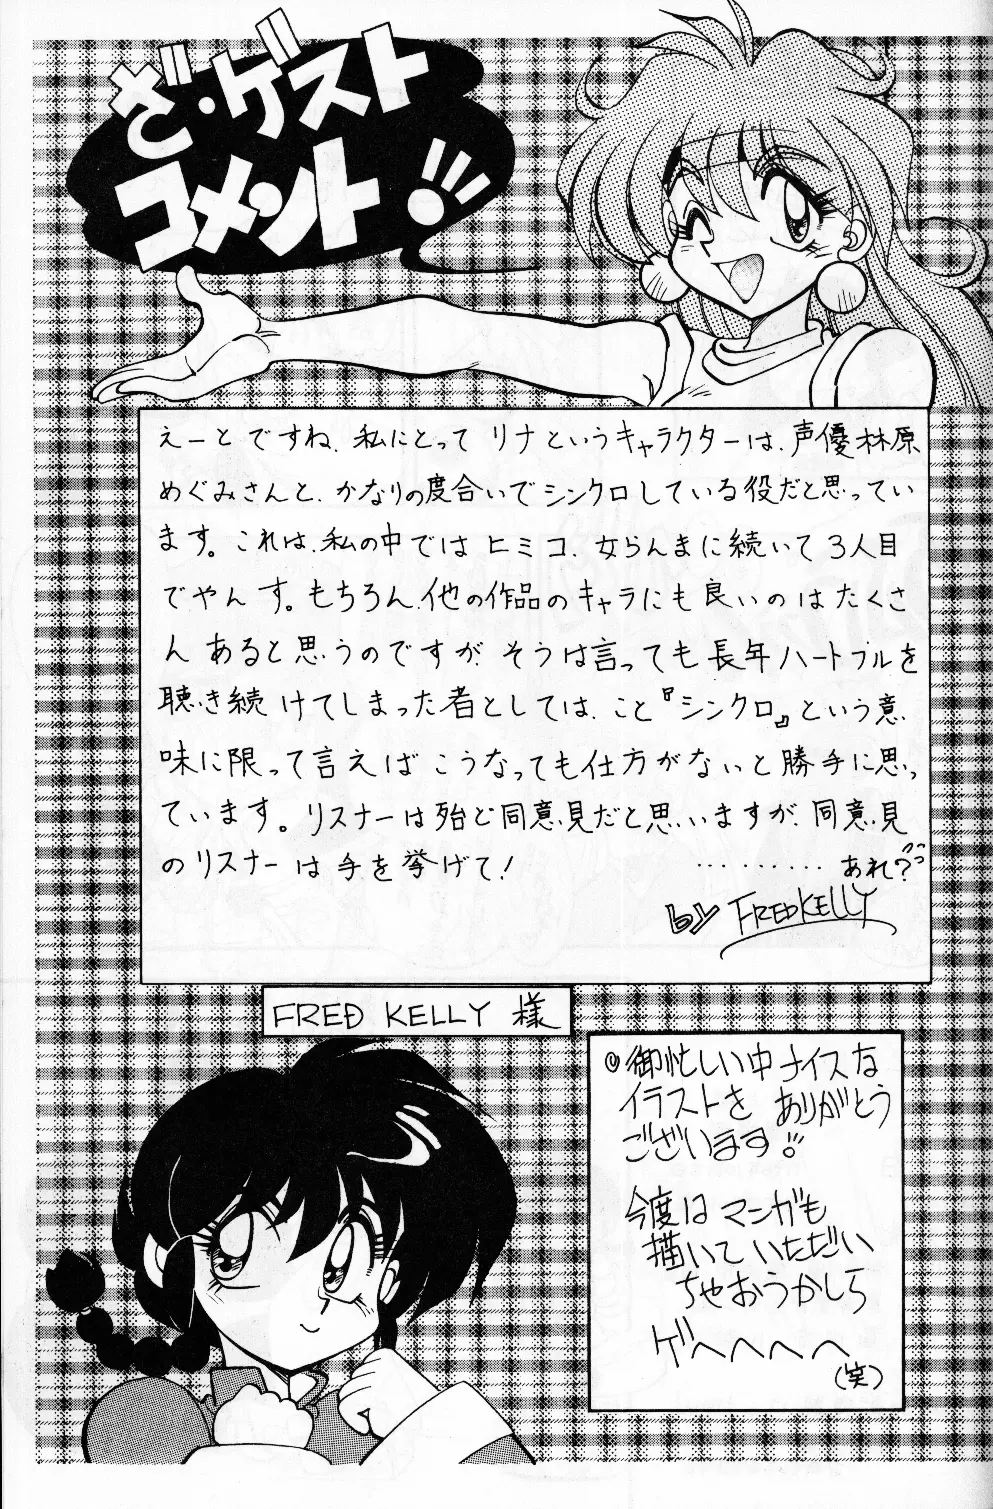 ざ・ゲスト
コメント!!!
えーとですね、私にとって リナというキャラクターは、声優林原
めぐみさんと、かなりの度合いでシンクロしている役だと思ってい
ます。これは、私の中では ヒミコ、女らんまに続いて 3人目
でやんす。もちろん、他の作品のキャラにも良いのはたくさ
ん あると思うのですが、そうは言っても長年ハートフルを
聴き続けてしまった者としては、こと『シンクロ』という意
味に限って言えば こうなっても仕方がないと勝手に思っ
ています。リスナーは殆ど同意見だと思いますが、同意見
のリスナーは手を挙げて!
………あれ?
by FRED KELLY
FRED KELLY 様
御忙しい中ナイスな
イラストを ありがとう
ございます!!
今度は マンガも
描いて いただい
ちゃおうかしら
ゲヘヘヘヘ
(笑)